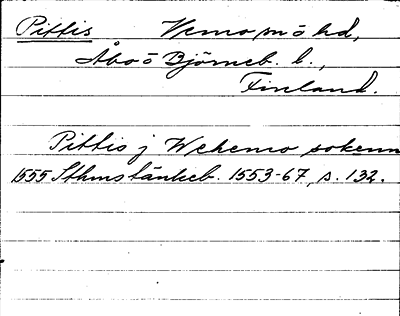 Pittis Vemo sn o hd,
Åbo o Björneb. l.,
Finland.
Pittis j Wehemo sokenn
1555 Sthms tänkeb. 1553-67, s. 132.